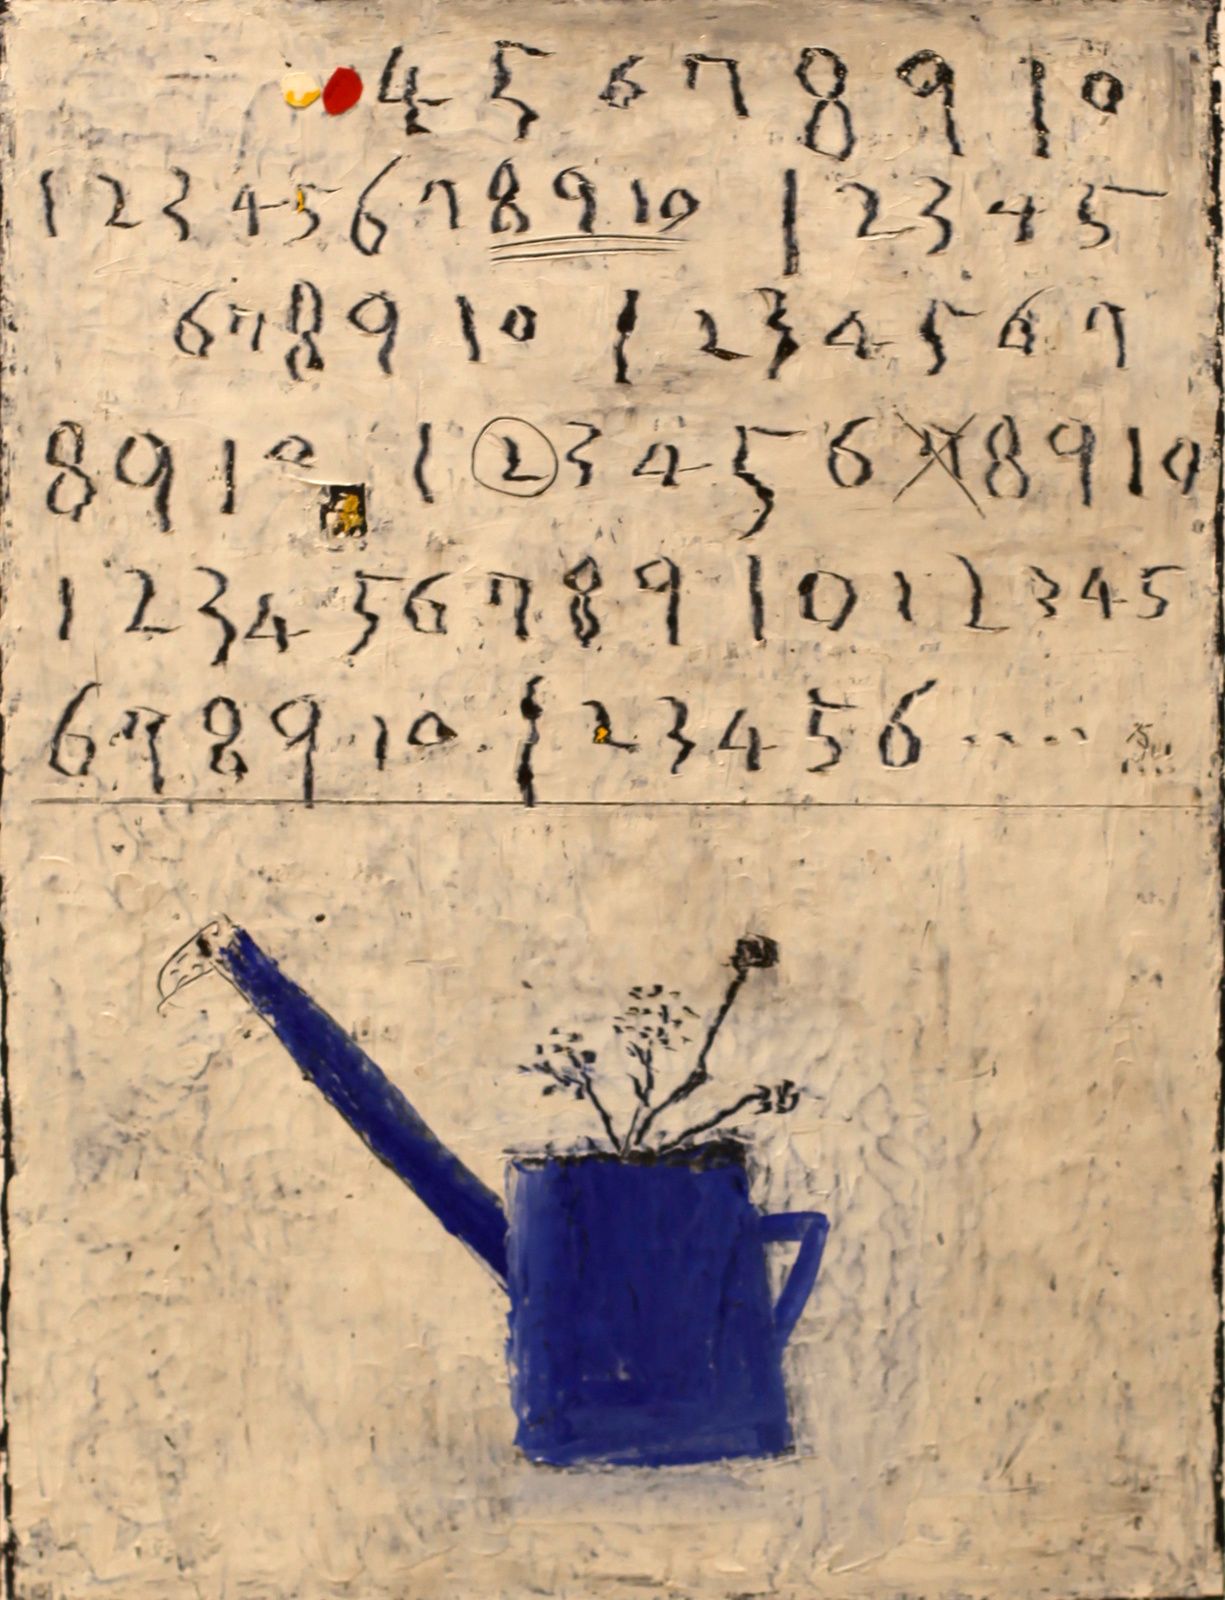 4 5 6 7 8 9 10
1 2 3 4 5 6 7 8 9 10 1 2 3 4 5
6 7 8 9 10 1 2 3 4 5 6 7
8 9 10 1 2 3 4 5 6 7 8 9 10
1 2 3 4 5 6 7 8 9 10 1 2 3 4 5
6 7 8 9 10 1 2 3 4 5 6 ....